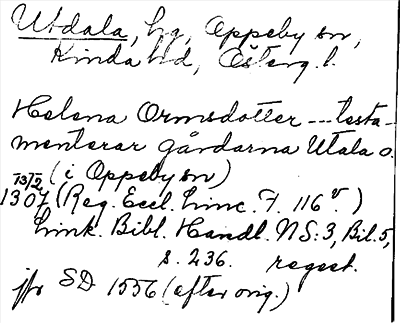 Utdala, hg, Oppeby sn,
Kinda hd, Österg. l.
Helena Ormsdotter --- testa-
menterar gårdarna Utala o.
(i Oppeby sn)
13/2
1307 (Reg. Eccl. Linc. F. 116 v.)
Link. Bibl. Handl. NS: 3, Bil. 5,
s. 236. regest.
jfr SD 1556 (efter orig.)